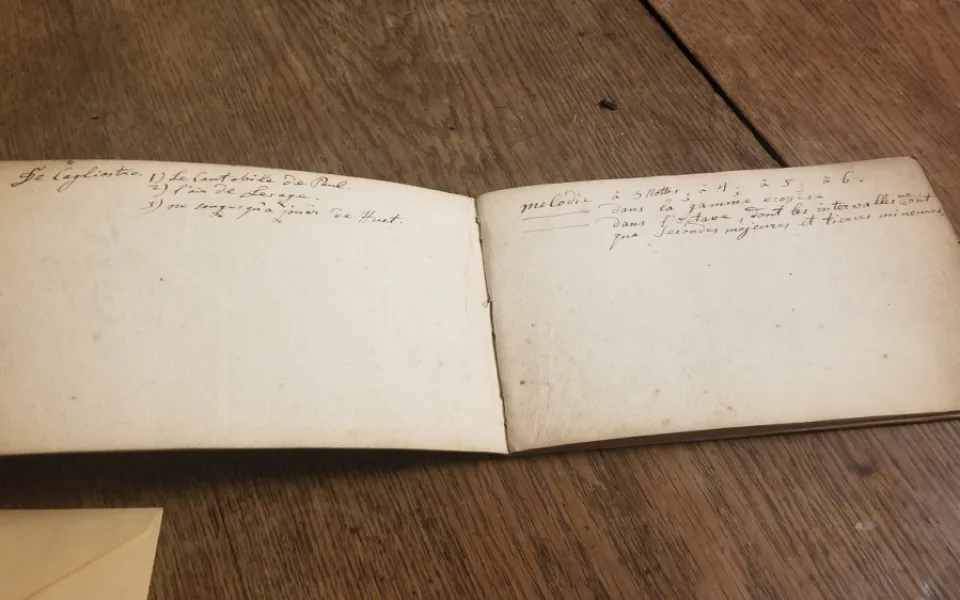 De Cagliostro. 1) Le Cantabile de Paul.
2) l'air de Lesage.
3) ne songe qu'a jouir de Huet.
melodie à 3 Nottes, à 4; à 5; à 6.
dans la gamme ecossise
dans l'octave, dont les intervalles ne sont
que Secondes majeures et tierces mineures.